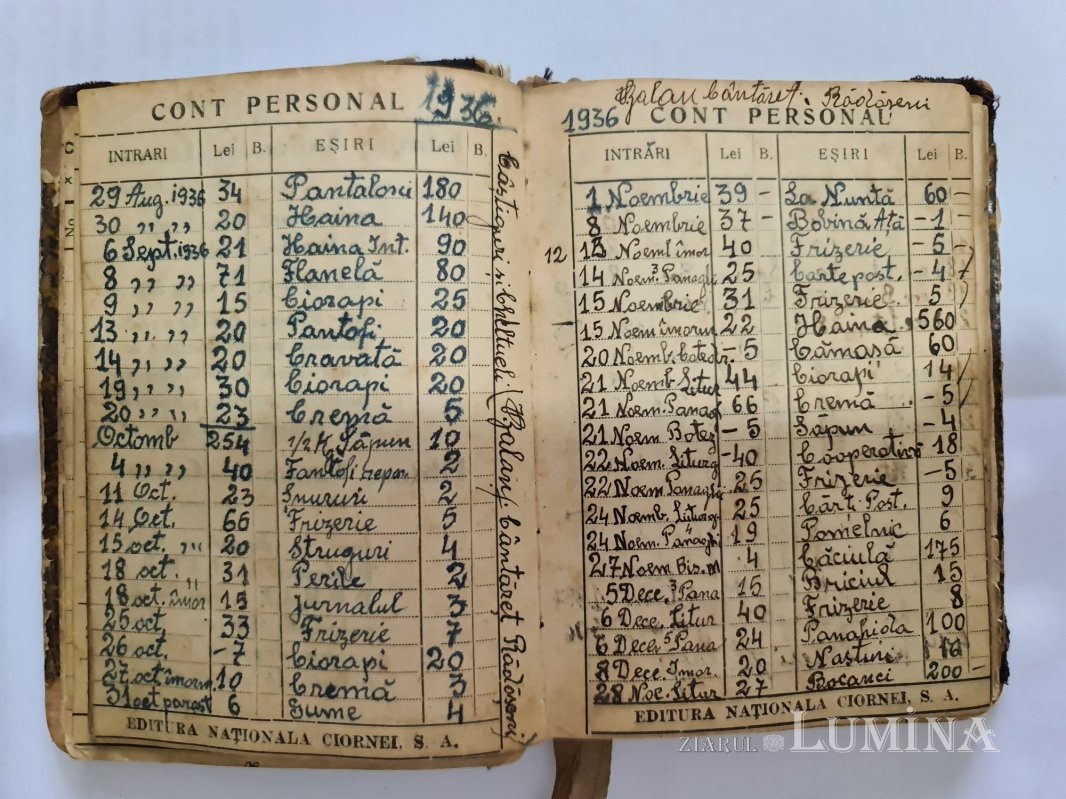 CONT PERSONAL 1936.
INTRARI Lei B. EŞIRI Lei B.
29 Aug. 1936 34 Pantaloni 180
30 " " 20 Haina 140
6 Sept. 1936 21 Haina Int. 90
8 " " 71 Flanelă 80
9 " " 15 Ciorapi 25
13 " " 20 Pantofi 20
14 " " 20 Cravată 20
19 " " 30 Ciorapi 20
20 " " 23 Cremă 5
Octomb 254 1/2 Kg Săpun 10
4 " " 40 Pantofi 2
11 Oct. 23 Snururi 2
14 Oct. 66 Frizerie 5
15 oct. " 20 Struguri 4
18 oct. " 31 Perile 2
18 oct. îmor 15 Jurnalul 3
25 oct 33 Frizerie 7
26 oct. -7 Ciorapi 20
27 oct îmorm 10 Cremă 3
31 oct parast 6 Gume 4
EDITURA NAȚIONALA CIORNEI, S. A.
96
Câştiguri şi cheltueli (Bălan) Cântăreț Rădăşeni
Bălan Cântăreț. Rădăşeni
1936 CONT PERSONAL
INTRĂRI Lei B. EŞIRI Lei B.
1 Noembrie 39 – La Nuntă 60 –
8 Noembrie 37 – Bobină Ață – 1 –
12 13 Noem îmor 40 Frizerie – 5 –
14 Noem. Panag 25 Carte post. – 4
15 Noembrie 31 Frizerie 5
15 Noem îmorm 22 Haina 560
20 Noemb. Coted. – 5 Cămasă 60
21 Noemb Litur 44 Ciorapi 14
21 Noem. Panag 66 Cremă – 5
21 Noem. Botez – 5 Săpun – 4
22 Noem. Liturg – 40 Cooperativă 18
22 Noem Panaghi 25 Frizerie – 5
24 Noemb. Liturg 25 Cărti Post. 9
24 Noem. Panaghi 19 Pomelnic 6
27 Noem Bis. M 4 Căciulă 175
5 Dece. 3 Pana 15 Briciul 15
6 Dece. Litur 40 Frizerie 8
6 Dece. 5 Pana 24 Panahida 100
8 Dece. Imor. 20 Nasturi 16
28 Noe. Litur 27 Bocanci 200 –
EDITURA NAȚIONALA CIORNEI, S. A.
ZIARUL LUMINA